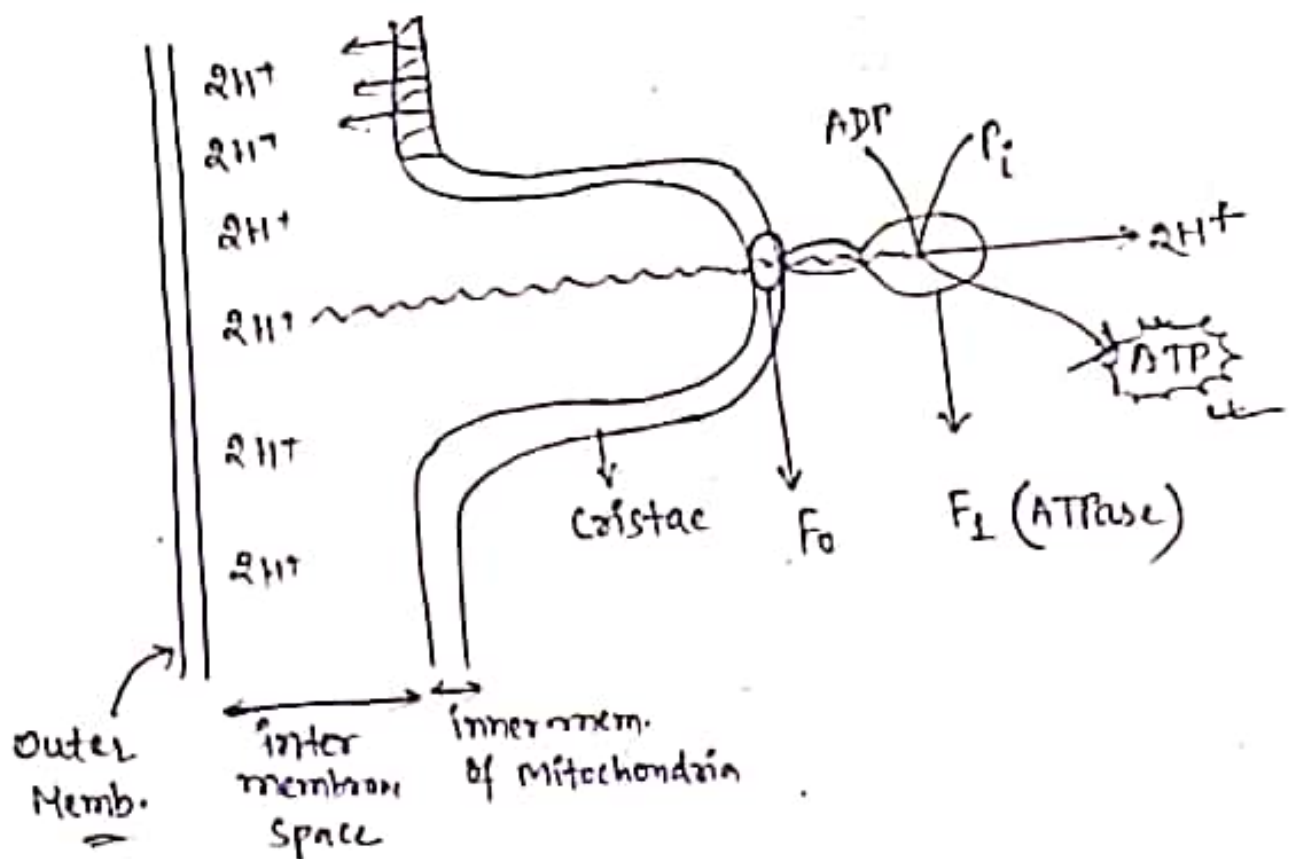 2H+
2H+
2H+
2H+
2H+
2H+
ADP
Pi
2H+
ATP
Cristae
F0
F1 (ATPase)
Outer
Memb.
inter
membrane
Space
inner mem.
of Mitochondria